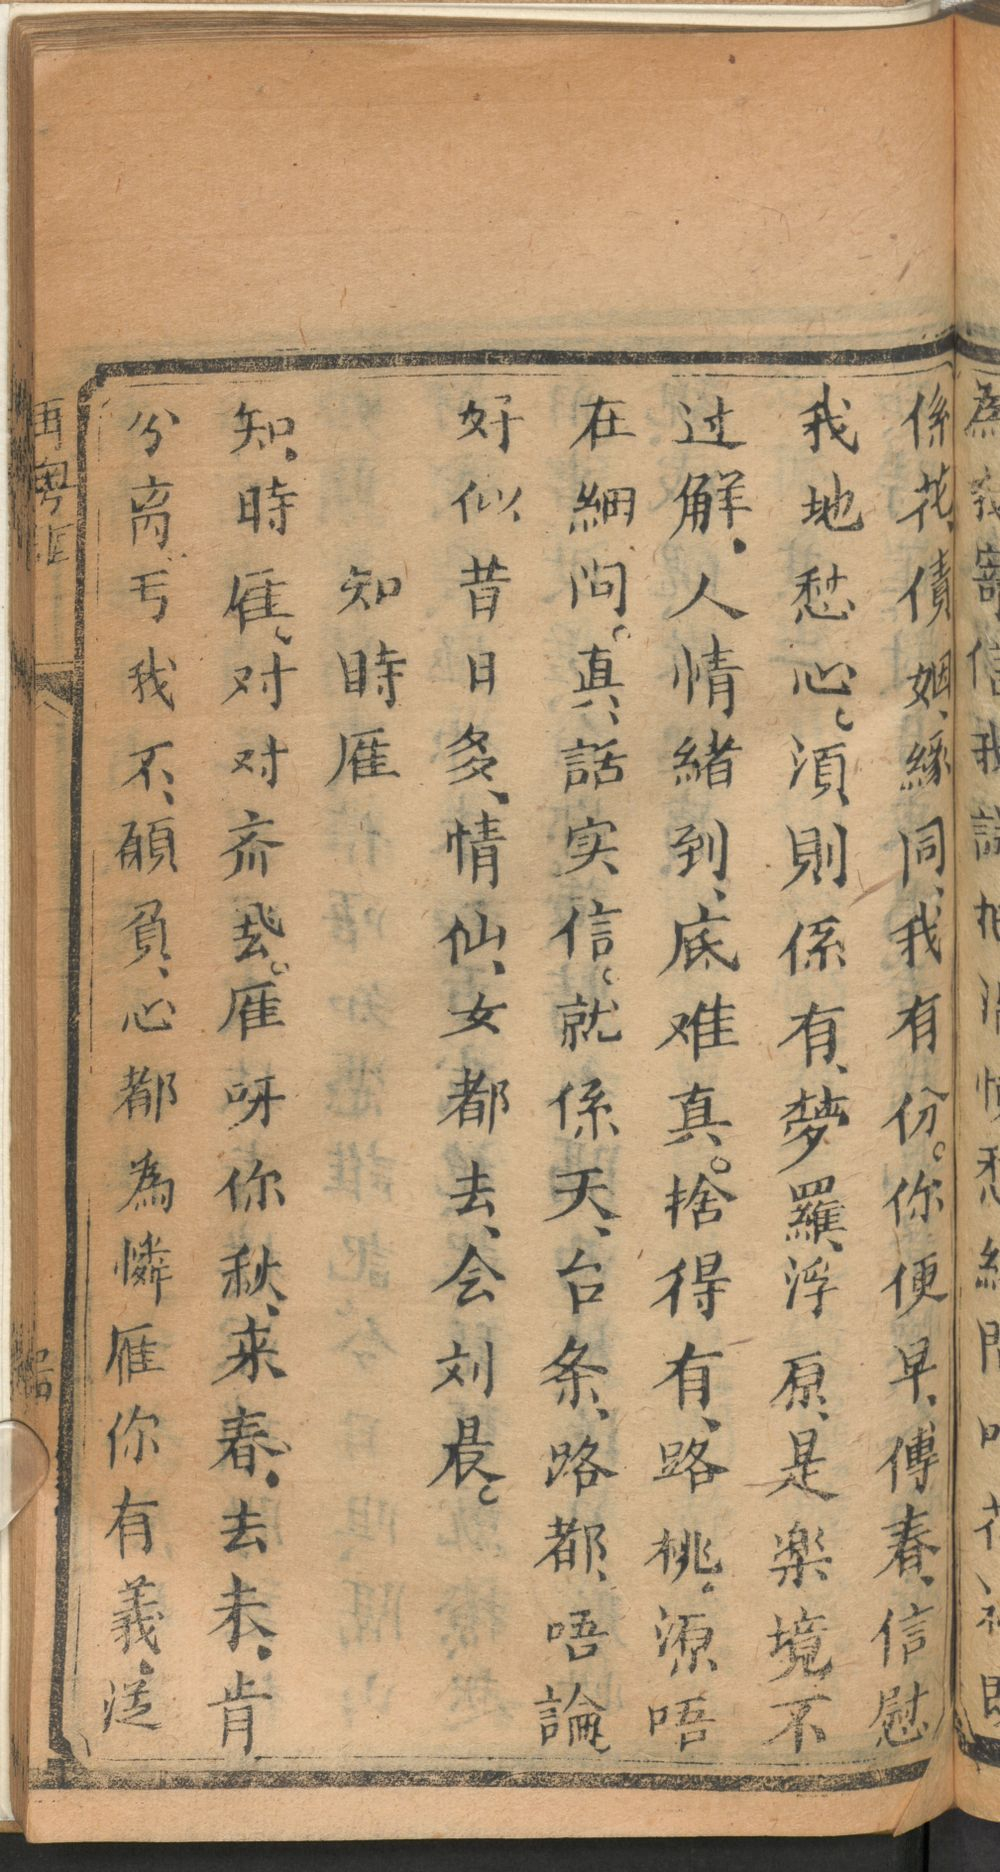 係花、債姻、緣同、我有份。你便早、傳春、信慰
我地愁心。須、則係有、夢羅、浮原、是樂境不
过解、人情緒到、底难真。捨得有、路桃。源唔
在細問。真、話実信。就係天、台条、路都、唔論
好似昔日多、情仙、女都去、会刘晨。
知時雁
知、時雁。对对斉飛。雁呀你秋、来春、去未、肯
分离、亏我不、願負、心都為憐雁你有義。送